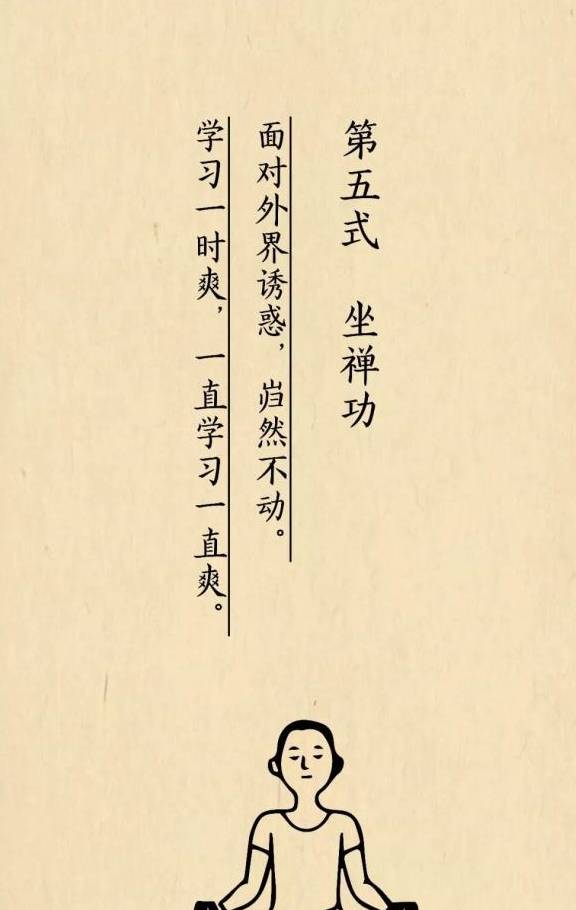 第五式 坐禅功
面对外界诱惑，岿然不动。
学习一时爽，一直学习一直爽。